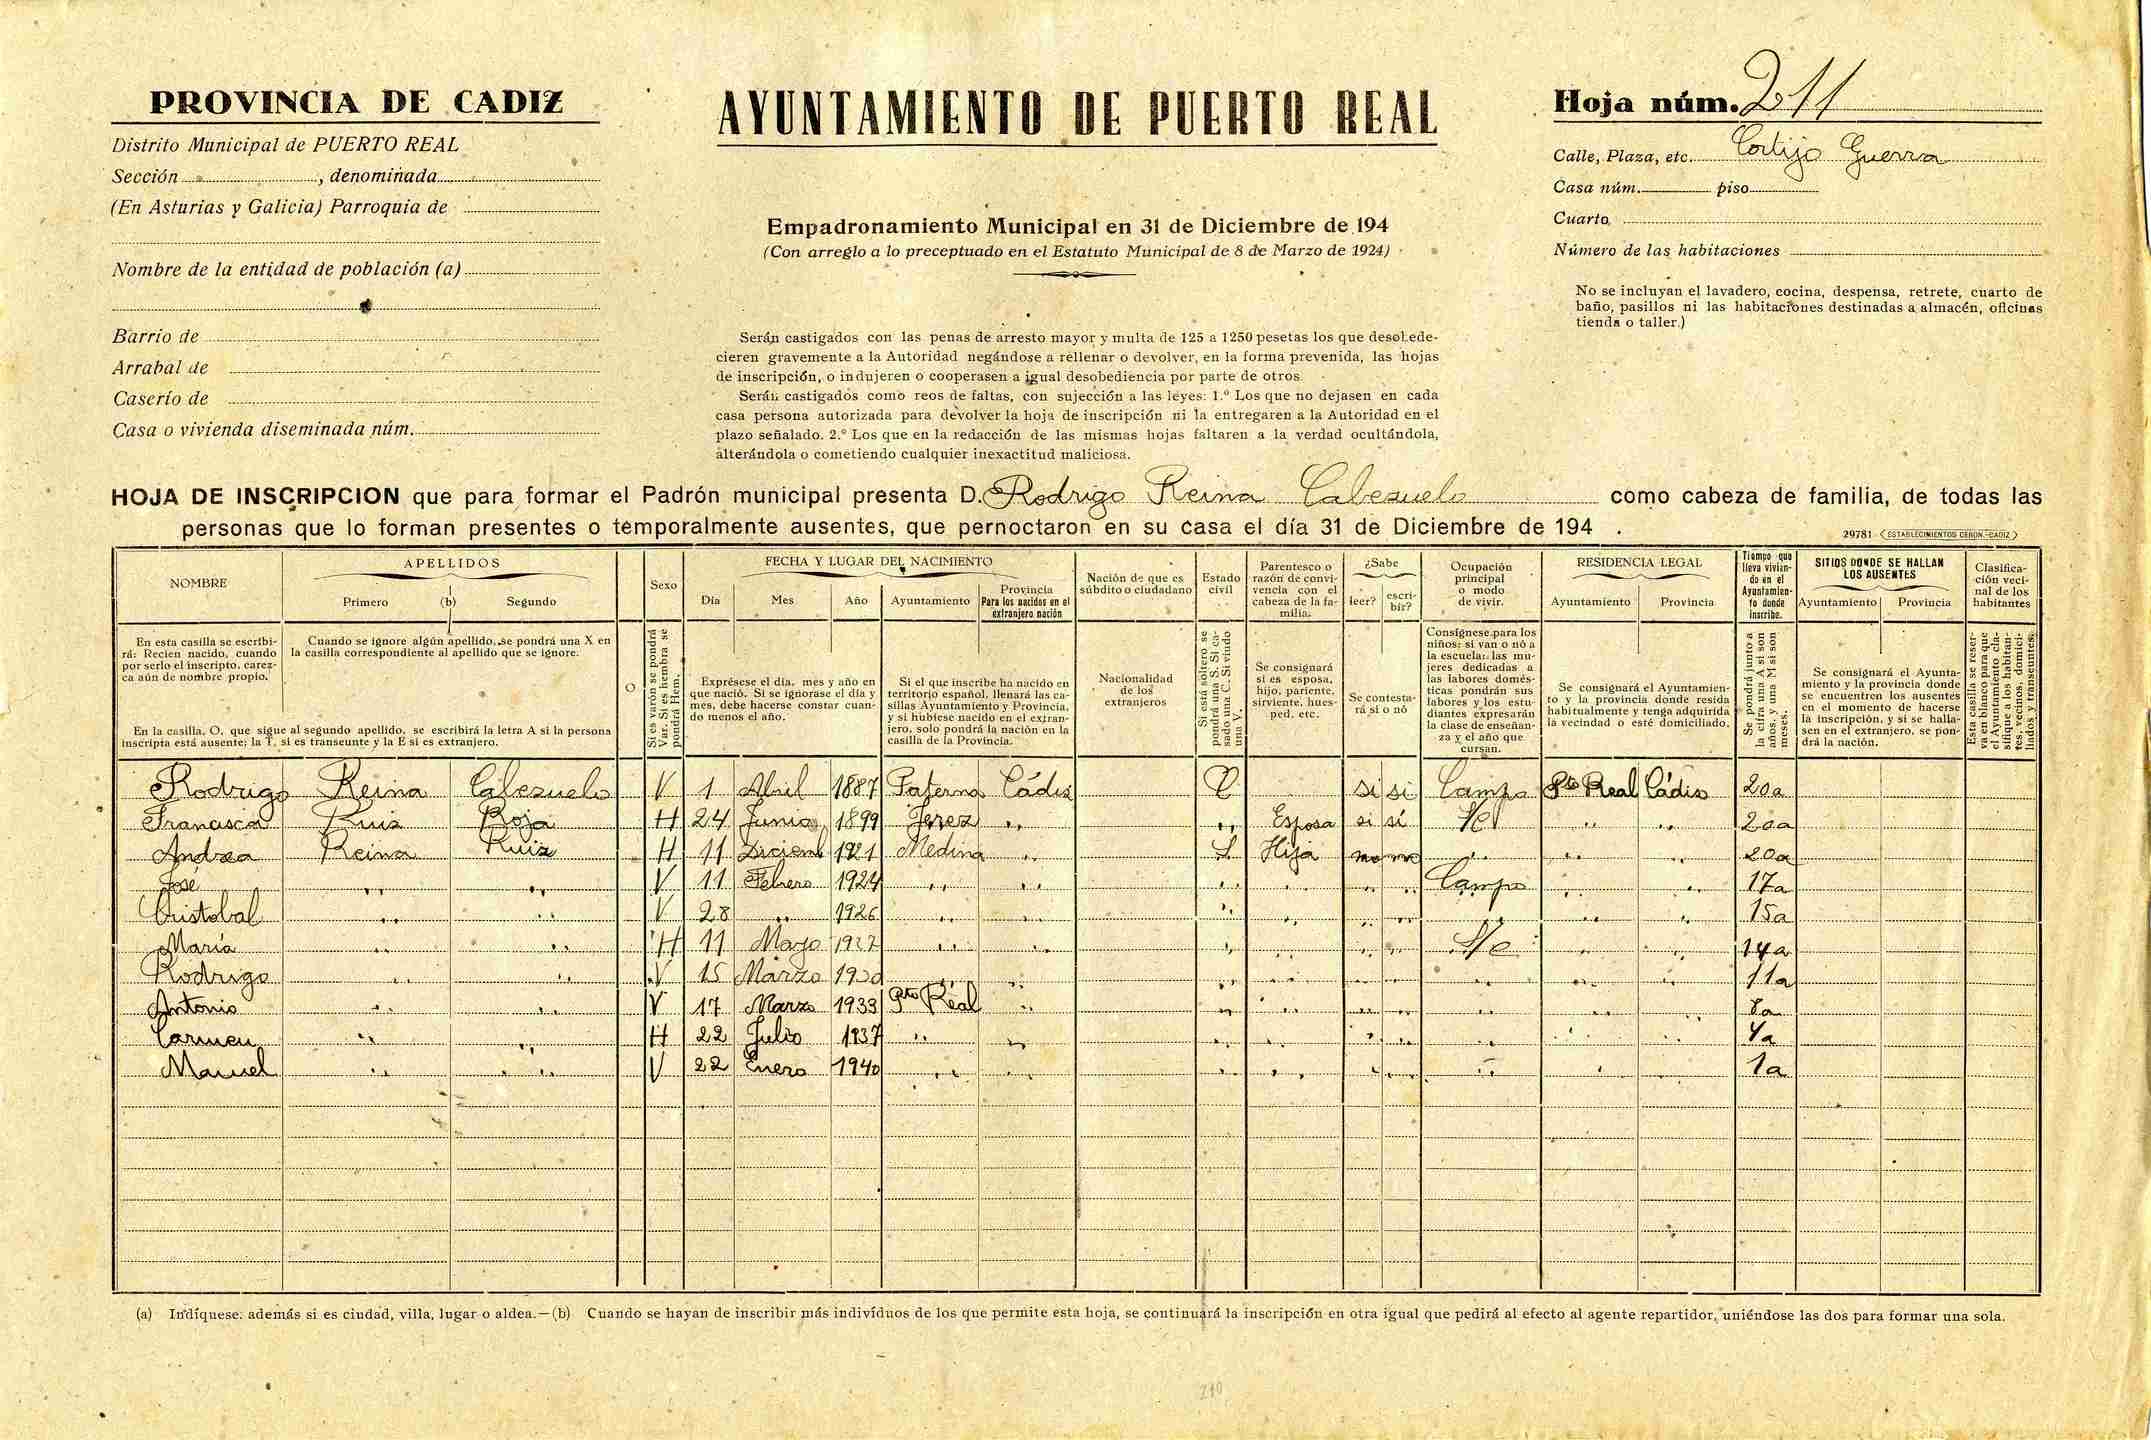 PROVINCIA DE CADIZ
Distrito Municipal de PUERTO REAL
Sección , denominada
(En Asturias y Galicia) Parroquia de
Nombre de la entidad de población (a)
Barrio de
Arrabal de
Caserío de
Casa o vivienda diseminada núm.
AYUNTAMIENTO DE PUERTO REAL
Empadronamiento Municipal en 31 de Diciembre de 194
(Con arreglo a lo preceptuado en el Estatuto Municipal de 8 de Marzo de 1924)
Serán castigados con las penas de arresto mayor y multa de 125 a 1250 pesetas los que desobede-
cieren gravemente a la Autoridad negándose a rellenar o devolver, en la forma prevenida, las hojas
de inscripción, o indujeren o cooperasen a igual desobediencia por parte de otros.
Serán castigados como reos de faltas, con sujección a las leyes: 1.º Los que no dejasen en cada
casa persona autorizada para devolver la hoja de inscripción ni la entregaren a la Autoridad en el
plazo señalado. 2.º Los que en la redacción de las mismas hojas faltaren a la verdad ocultándola,
alterándola o cometiendo cualquier inexactitud maliciosa.
Hoja núm. 211
Calle, Plaza, etc. Cortijo Guerra
Casa núm. piso
Cuarto
Número de las habitaciones
No se incluyan el lavadero, cocina, despensa, retrete, cuarto de
baño, pasillos ni las habitaciones destinadas a almacén, oficinas
tienda o taller.)
HOJA DE INSCRIPCION que para formar el Padrón municipal presenta D. Rodrigo Reina Cabezuelo como cabeza de familia, de todas las
personas que lo forman presentes o temporalmente ausentes, que pernoctaron en su casa el día 31 de Diciembre de 194 .
29781 - ESTABLECIMIENTOS CERON.-CADIZ
NOMBRE
APELLIDOS
Primero (b) Segundo
O
Sexo
FECHA Y LUGAR DEL NACIMIENTO
Día Mes Año Ayuntamiento
Provincia
Para los nacidos en el
extranjero nación
Nación de que es
súbdito o ciudadano
Estado
civil
Parentesco o
razón de convi-
vencia con el
cabeza de la fa-
milia.
¿Sabe
leer?
escri-
bir?
Ocupación
principal
o modo
de vivir.
RESIDENCIA LEGAL
Ayuntamiento Provincia
Tiempo que
lleva vivien-
do en el
Ayuntamien-
to donde
inscribe.
SITIOS DONDE SE HALLAN
LOS AUSENTES
Ayuntamiento Provincia
Clasifica-
ción veci-
nal de los
habitantes
En esta casilla se escribi-
rá: Recien nacido, cuando
por serlo el inscripto, carez-
ca aún de nombre propio.
Cuando se ignore algún apellido, se pondrá una X en
la casilla correspondiente al apellido que se ignore.
En la casilla, O, que sigue al segundo apellido, se escribirá la letra A si la persona
inscripta está ausente; la T, si es transeunte y la E si es extranjero.
Si es varón se pondrá
Var. Si es hembra se
pondrá Hem.
Exprésese el día, mes y año en
que nació. Si se ignorase el día y
mes, debe hacerse constar cuan-
do menos el año.
Si el que inscribe ha nacido en
territorio español, llenará las ca-
sillas Ayuntamiento y Provincia,
y si hubiese nacido en el extran-
jero, solo pondrá la nación en la
casilla de la Provincia.
Nacionalidad
de los
extranjeros
Si está soltero se
pondrá una S. Si ca-
sado una C. Si viudo
una V.
Se consignará
si es esposa,
hijo, pariente,
sirviente, hues-
ped, etc.
Se contesta-
rá si o nó
Consígnese para los
niños: si van o nó a
la escuela: las mu-
jeres dedicadas a
las labores domés-
ticas pondrán sus
labores y los estu-
diantes expresarán
la clase de enseñan-
za y el año que
cursan.
Se consignará el Ayuntamien-
to y la provincia donde resida
habitualmente y tenga adquirida
la vecindad o esté domiciliado.
Se pondrá junto a
la cifra una A si son
años, y una M si son
meses.
Se consignará el Ayunta-
miento y la provincia donde
se encuentren los ausentes
en el momento de hacerse
la inscripción, y si se halla-
sen en el extranjero, se pon-
drá la nación.
Esta casilla se reser-
va en blanco para que
el Ayuntamiento cla-
sifique a los habitan-
tes, vecinos, domici-
liados y transeuntes.
Rodrigo Reina Cabezuelo V 1 Abril 1887 Paterna Cádiz C si si Campo Pto Real Cádiz 20a
Francisca Ruiz Roja H 24 Junio 1899 Jerez " " Esposa si sí S/C " " 20a
Andrea Reina Ruiz H 11 Diciemb 1921 Medina " S Hija no no " " " 20a
José " " V 11 Febrero 1924 " " " " " " Campo " " 17a
Cristobal " " V 28 " 1926 " " " " " " " " " 15a
María " " H 11 Mayo 1927 " " " " " " S/C " " 14a
Rodrigo " " V 15 Marzo 1930 " " " " " " " " " 11a
Antonio " " V 17 Marzo 1933 Pto Réal " " " " " " " " 8a
Carmen " " H 22 Julio 1937 " " " " " " " " " 4a
Manuel " " V 22 Enero 1940 " " " " " " " " " 1a
(a) Indíquese, además si es ciudad, villa, lugar o aldea.—(b) Cuando se hayan de inscribir más indivíduos de los que permite esta hoja, se continuará la inscripción en otra igual que pedirá al efecto al agente repartidor, uniéndose las dos para formar una sola.
210